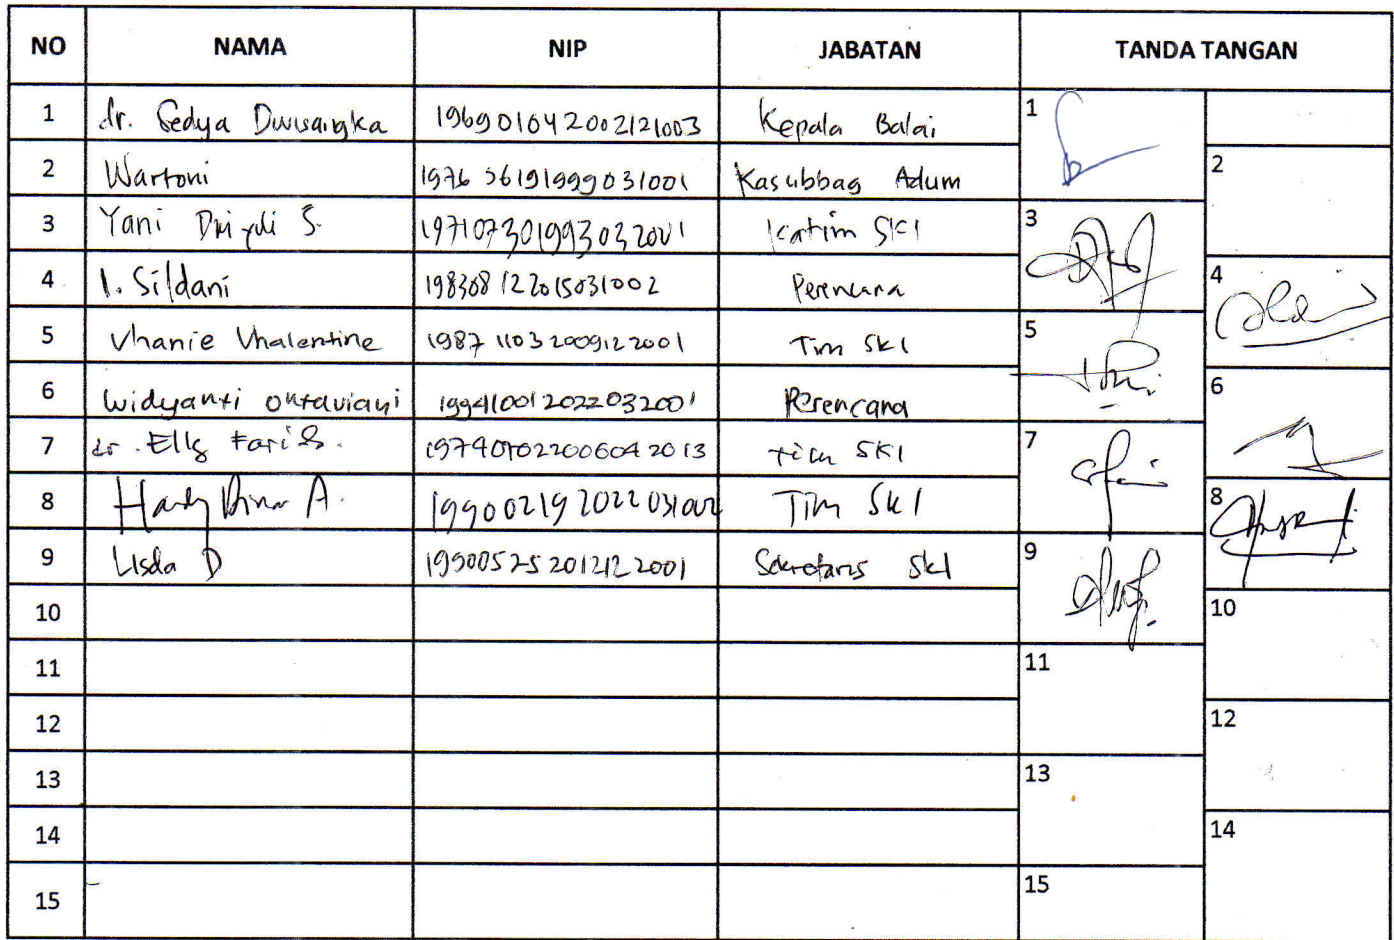 NO NAMA NIP JABATAN TANDA TANGAN
1 dr. Sedya Dwisangka 196901042002121003 Kepala Balai 1
2 Wartoni 1976 36191999031001 Kasubbag Adum 2
3 Yani S. 197107301993032001 Katim SKI 3
4 I. Sildani 198308122015031002 Perencana 4
5 Vhanie Vhalentine 198711032009122001 Tim SKI 5
6 Widyanti Oktaviani 199410012022032001 Perencana 6
7 dr. Elly Farida. 2006042013 Tim SKI 7
8 A. 199002192022031002 Tim SKI 8
9 Lisda D 199005252012122001 Sekretaris SKI 9
10 10
11 11
12 12
13 13
14 14
15 15